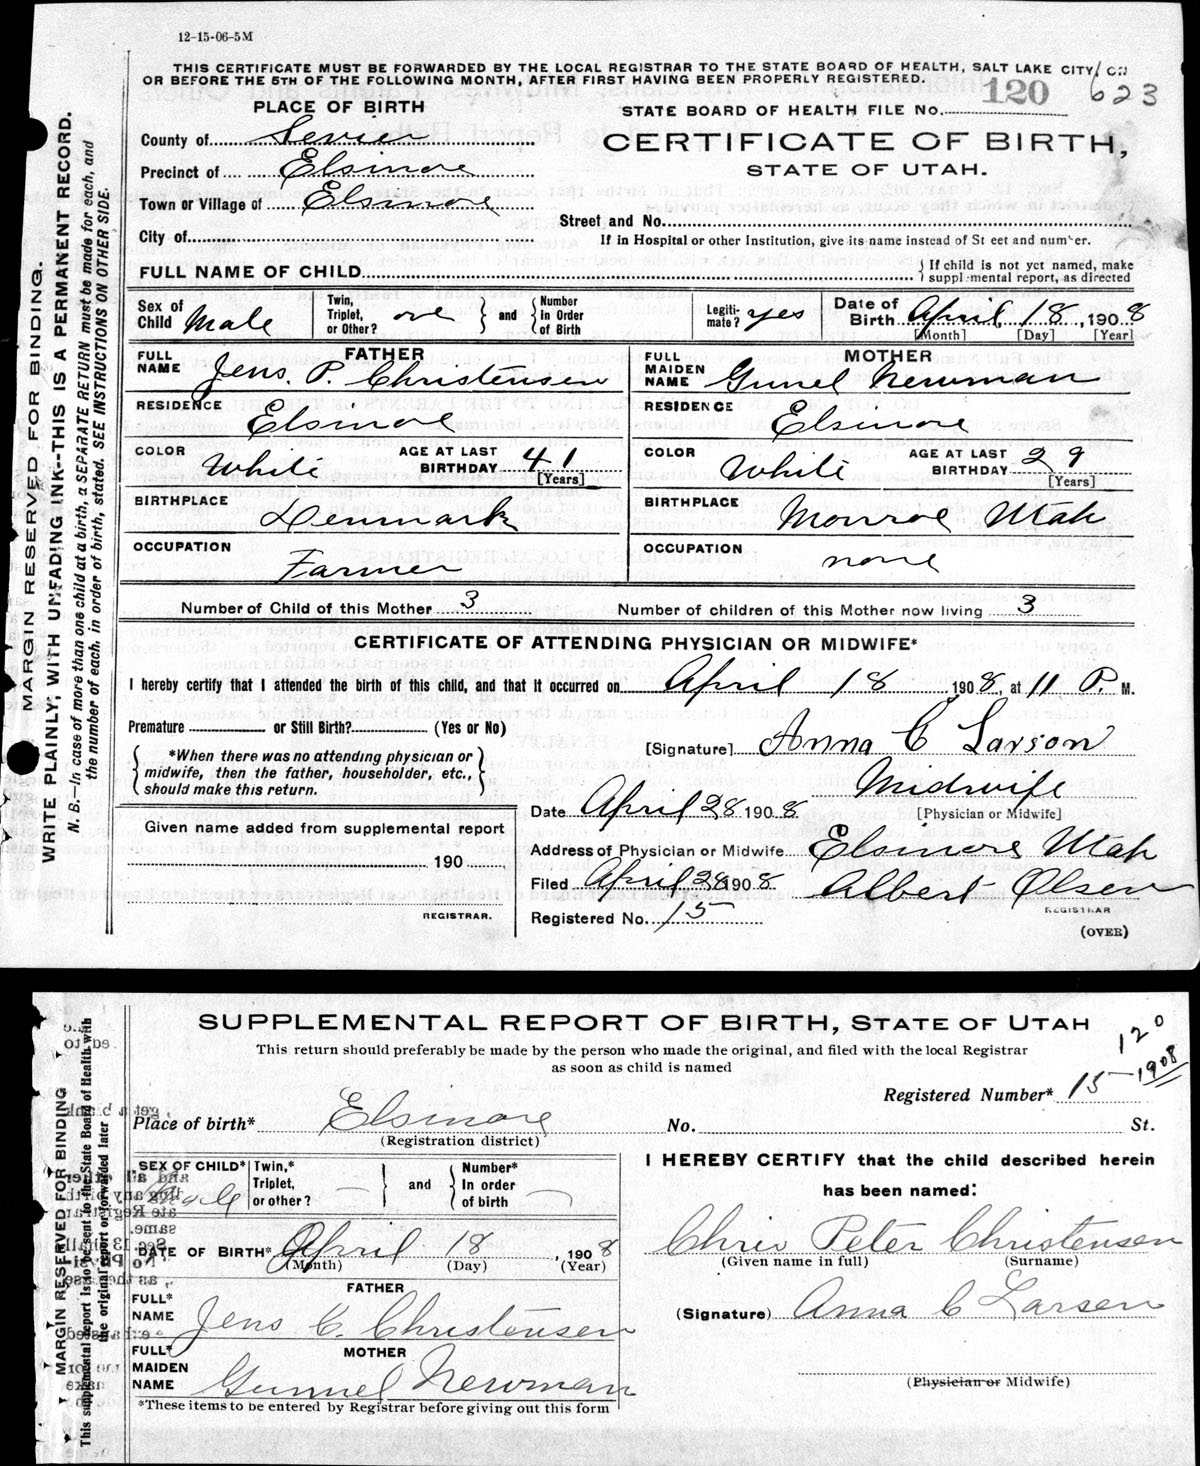 12-15-06-5M
THIS CERTIFICATE MUST BE FORWARDED BY THE LOCAL REGISTRAR TO THE STATE BOARD OF HEALTH, SALT LAKE CITY, ON
OR BEFORE THE 5TH OF THE FOLLOWING MONTH, AFTER FIRST HAVING BEEN PROPERLY REGISTERED.
623
PLACE OF BIRTH
STATE BOARD OF HEALTH FILE No. 120
County of Sevier
CERTIFICATE OF BIRTH,
Precinct of Elsinore
STATE OF UTAH.
Town or Village of Elsinore
Street and No.
City of
If in Hospital or other Institution, give its name instead of St eet and number.
FULL NAME OF CHILD
} If child is not yet named, make
supplemental report, as directed
Sex of Child Male
Twin, Triplet, or Other? one } and { Number In Order of Birth
Legiti-mate? yes
Date of Birth April 18, 1908
[Month] [Day] [Year]
FATHER
FULL NAME Jens. P. Christensen
RESIDENCE Elsinore
COLOR White AGE AT LAST BIRTHDAY 41
[Years]
BIRTHPLACE Denmark
OCCUPATION Farmer
MOTHER
FULL MAIDEN NAME Gunel Newman
RESIDENCE Elsinore
COLOR White AGE AT LAST BIRTHDAY 29
[Years]
BIRTHPLACE Monroe Utah
OCCUPATION none
Number of Child of this Mother 3 Number of children of this Mother now living 3
CERTIFICATE OF ATTENDING PHYSICIAN OR MIDWIFE*
I hereby certify that I attended the birth of this child, and that it occurred on April 18, 1908, at 11 P. M.
Premature or Still Birth? (Yes or No)
{ *When there was no attending physician or
midwife, then the father, householder, etc.,
should make this return. }
[Signature] Anna C Larson
Midwife
[Physician or Midwife]
Date April 28 1908
Address of Physician or Midwife Elsinore Utah
Filed April 28 1908 Albert Olsen
REGISTRAR
Registered No. 15
(OVER)
Given name added from supplemental report
190
REGISTRAR.
MARGIN RESERVED FOR BINDING.
WRITE PLAINLY, WITH UNFADING INK--THIS IS A PERMANENT RECORD.
N. B.—In case of more than one child at a birth, a SEPARATE RETURN must be made for each, and
the number of each, in order of birth, stated. SEE INSTRUCTIONS ON OTHER SIDE.
SUPPLEMENTAL REPORT OF BIRTH, STATE OF UTAH
This return should preferably be made by the person who made the original, and filed with the local Registrar
as soon as child is named
120
Registered Number* 15-1908
Place of birth* Elsinore No. St.
(Registration district)
SEX OF CHILD* Male
Twin,* Triplet, or other? } and { Number* In order of birth
DATE OF BIRTH* April 18, 1908
(Month) (Day) (Year)
FATHER
FULL* NAME Jens C. Christensen
MOTHER
FULL* MAIDEN NAME Gunnel Newman
*These items to be entered by Registrar before giving out this form
I HEREBY CERTIFY that the child described herein
has been named:
Chris Peter Christensen
(Given name in full) (Surname)
(Signature) Anna C Larsen
(Physician or Midwife)
MARGIN RESERVED FOR BINDING
This supplemental report is to be sent to the State Board of Health with
the original report or forwarded later